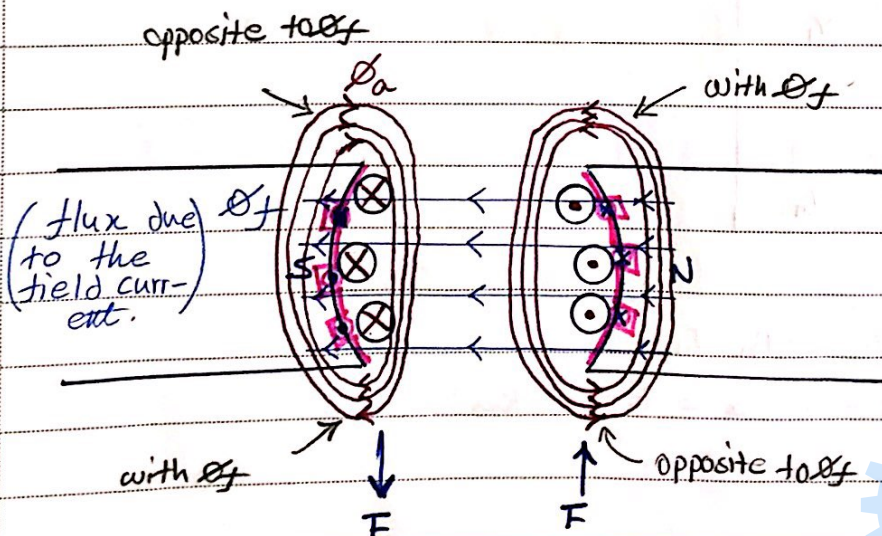 opposite to Øf
Øa
with Øf
(flux due
to the
field curr-
ent.)
Øf
S
N
with Øf
opposite to Øf
F
F